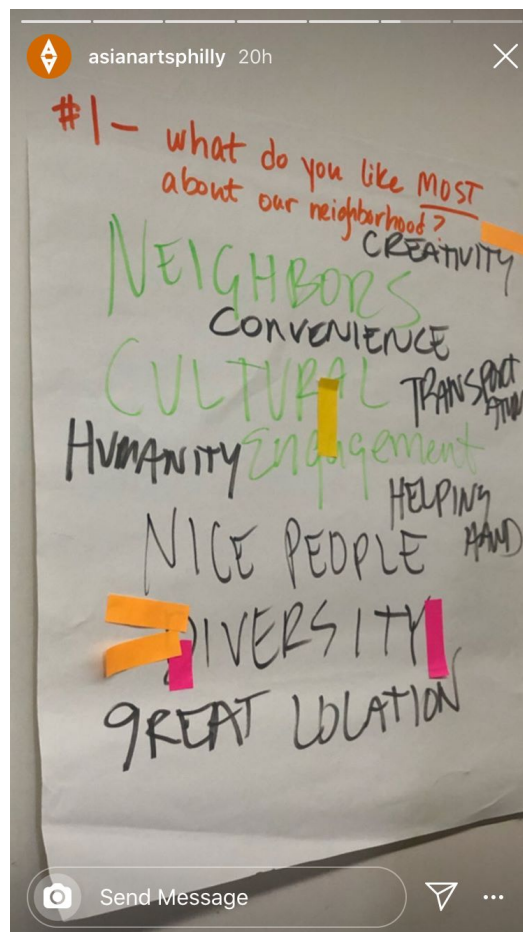 asianartsphilly 20h
#1- what do you like MOST
about our neighborhood?
CREATIVITY
NEIGHBORS
CONVENIENCE
CULTURAL
TRANSPORT
ATION
HUMANITY
Engagement
HELPING
HAND
NICE PEOPLE
DIVERSITY
GREAT LOCATION
Send Message